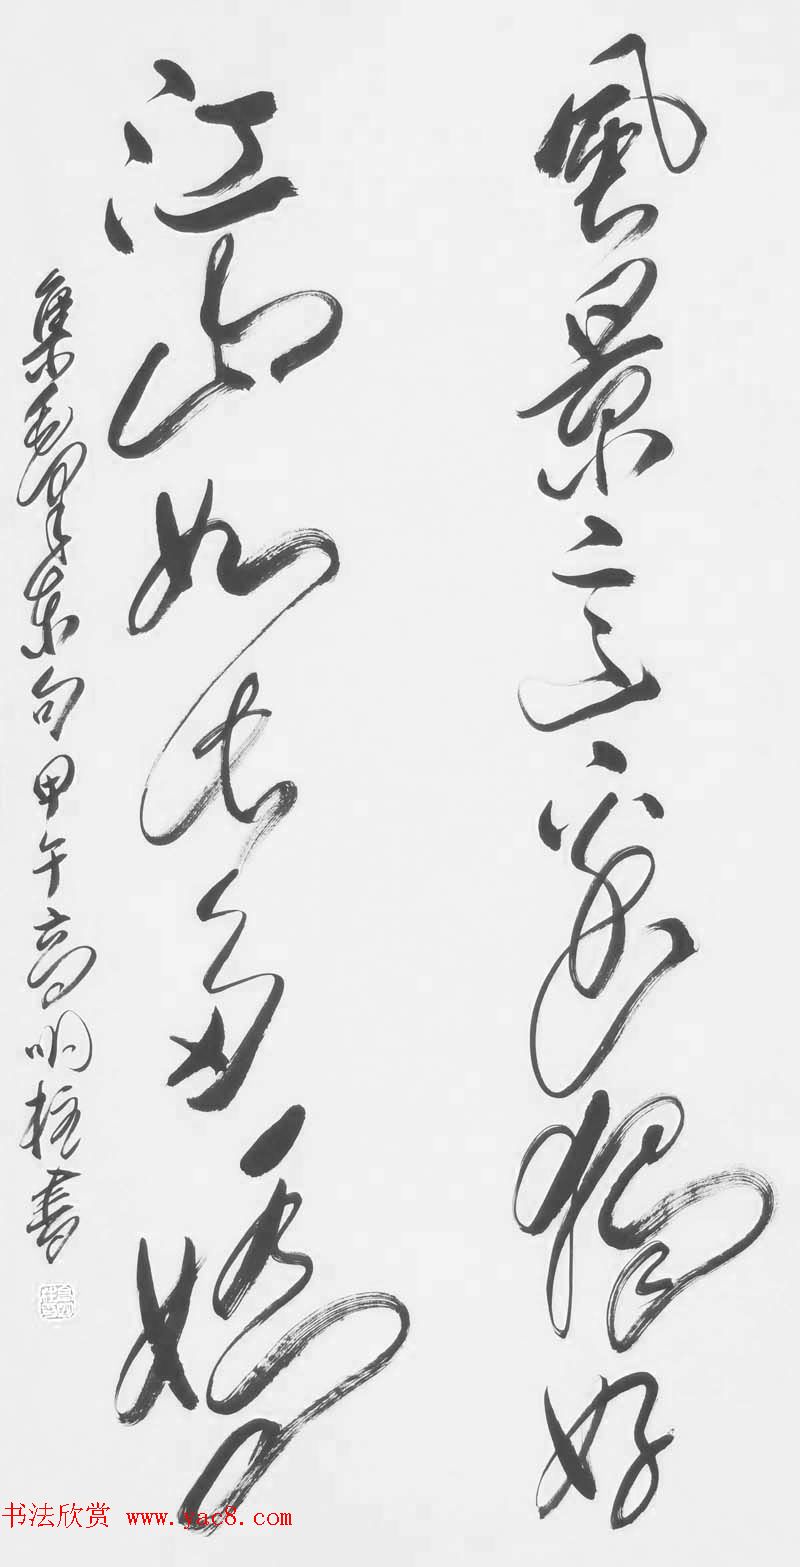 風景這邊獨好
江山如此多嬌
集毛澤東句甲午高明柱書
书法欣赏 www.yac8.com